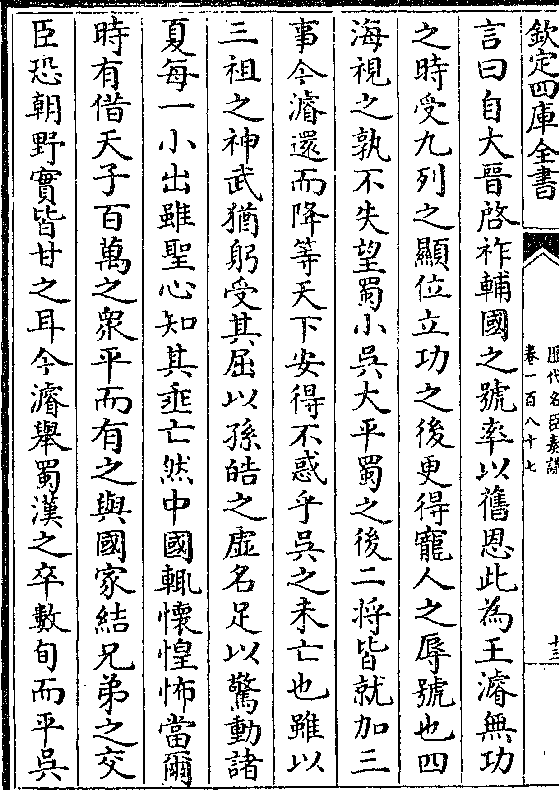 欽定四庫全書
歷代名臣奏議
卷一百八十七
十三
言曰自大晉啓祚輔國之號率以舊恩此為王濬無功
之時受九列之顯位立功之後更得寵人之辱號也四
海視之孰不失望蜀小吳大平蜀之後二将皆就加三
事今濬還而降等天下安得不惑乎吳之未亡也雖以
三祖之神武猶躬受其屈以孫皓之虛名足以驚動諸
夏每一小出雖聖心知其垂亡然中國輒懷惶怖當爾
時有借天子百萬之衆平而有之與國家結兄弟之交
臣恐朝野實皆甘之耳今濬舉蜀漢之卒數旬而平吳